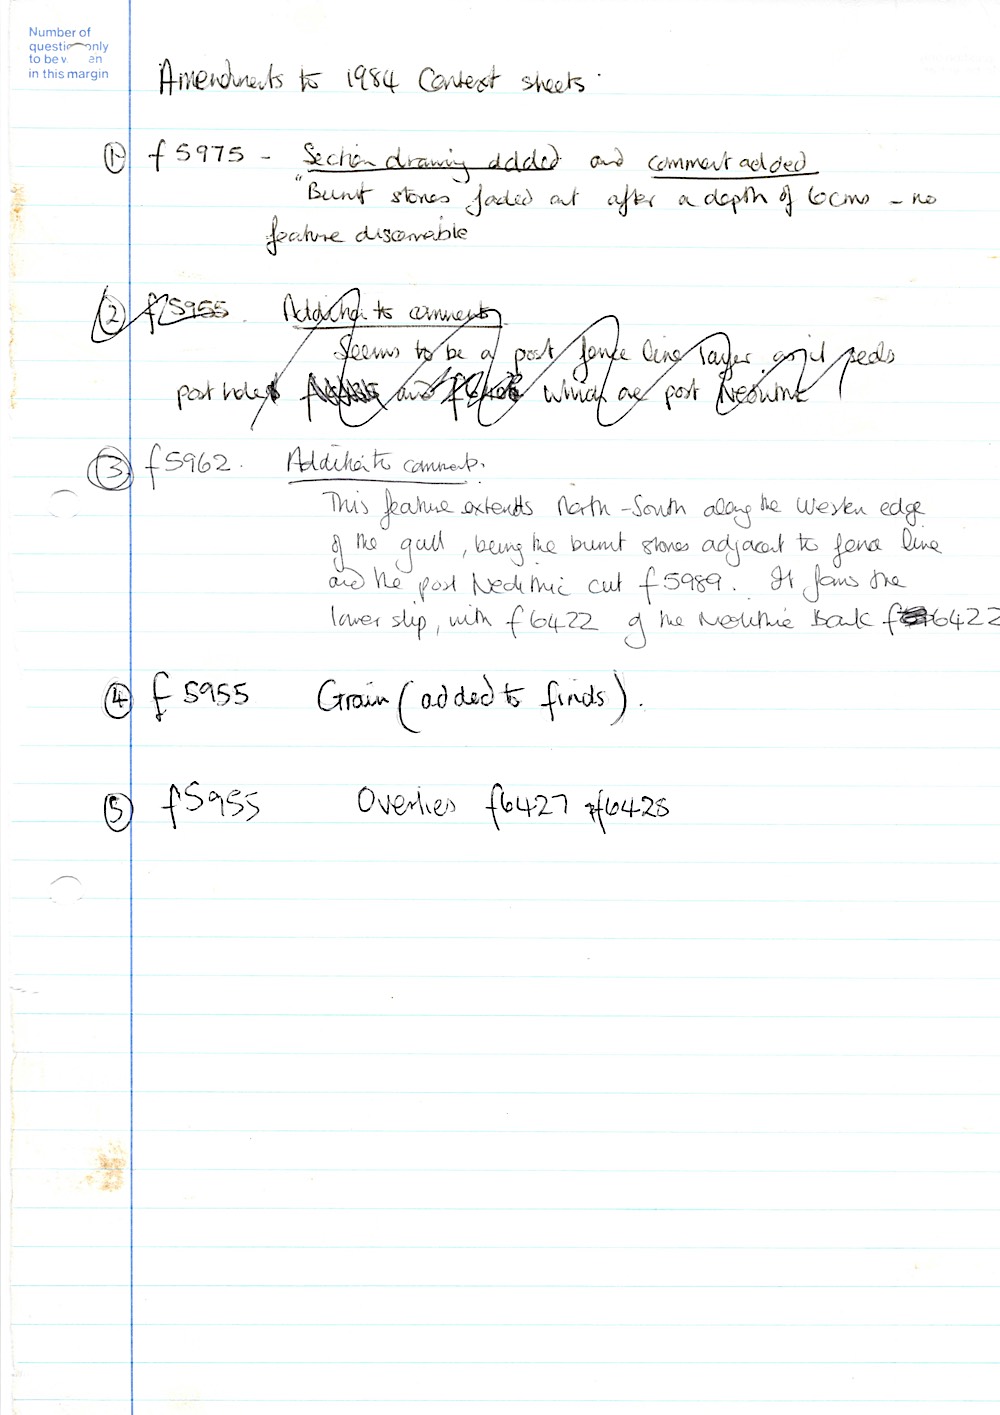 Number of
question only
to be written
in this margin
Amendments to 1984 Context sheets.
① f5975 - Section drawing added and comment added
"Burnt stones faded out after a depth of 60cms - no
feature discernable
② f5955 Addition to comments
Seems to be a post fence line layer as it seals
post holes and which are post Neolithic
③ f5962. Addition to comments.
This feature extends North-South along the Western edge
of the gull, being the burnt stones adjacent to fence line
and the post Neolithic cut f5989. It forms the
lower slip, with f6422 of the Neolithic Bank f6422
④ f5955 Grain (added to finds).
⑤ f5955 Overlies f6427 f6428